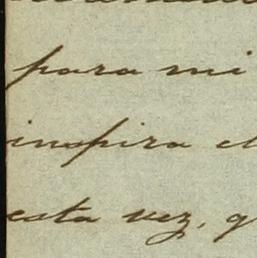 para mi
inspira el
esta vez, q